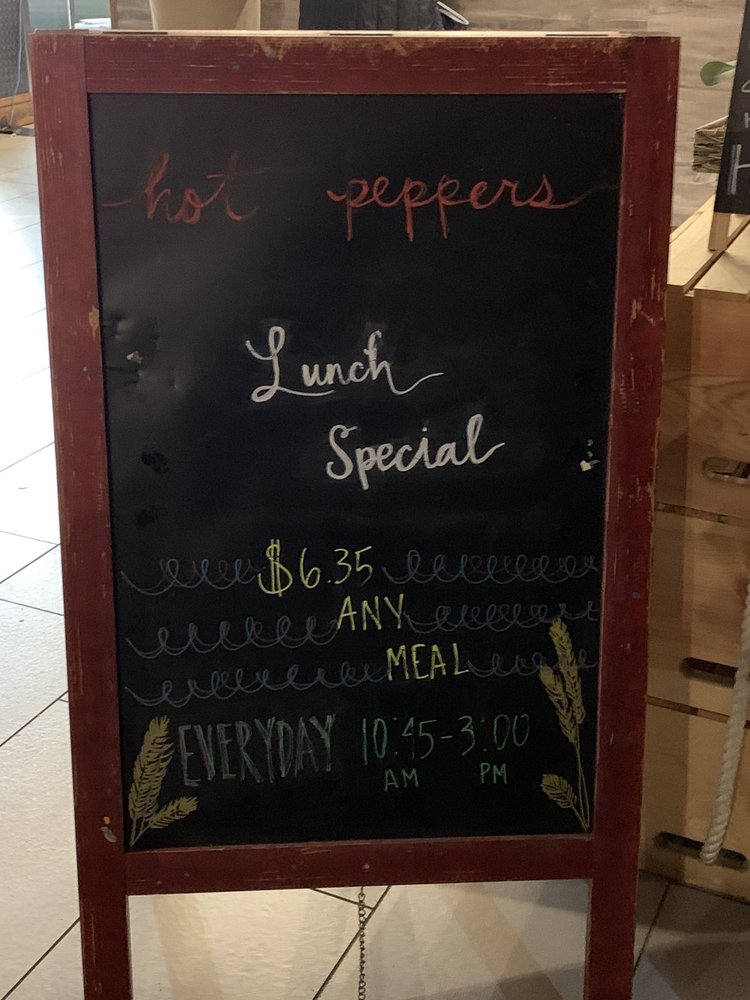 hot peppers
Lunch
Special
$6.35
ANY
MEAL
EVERYDAY 10:45-3:00
AM PM